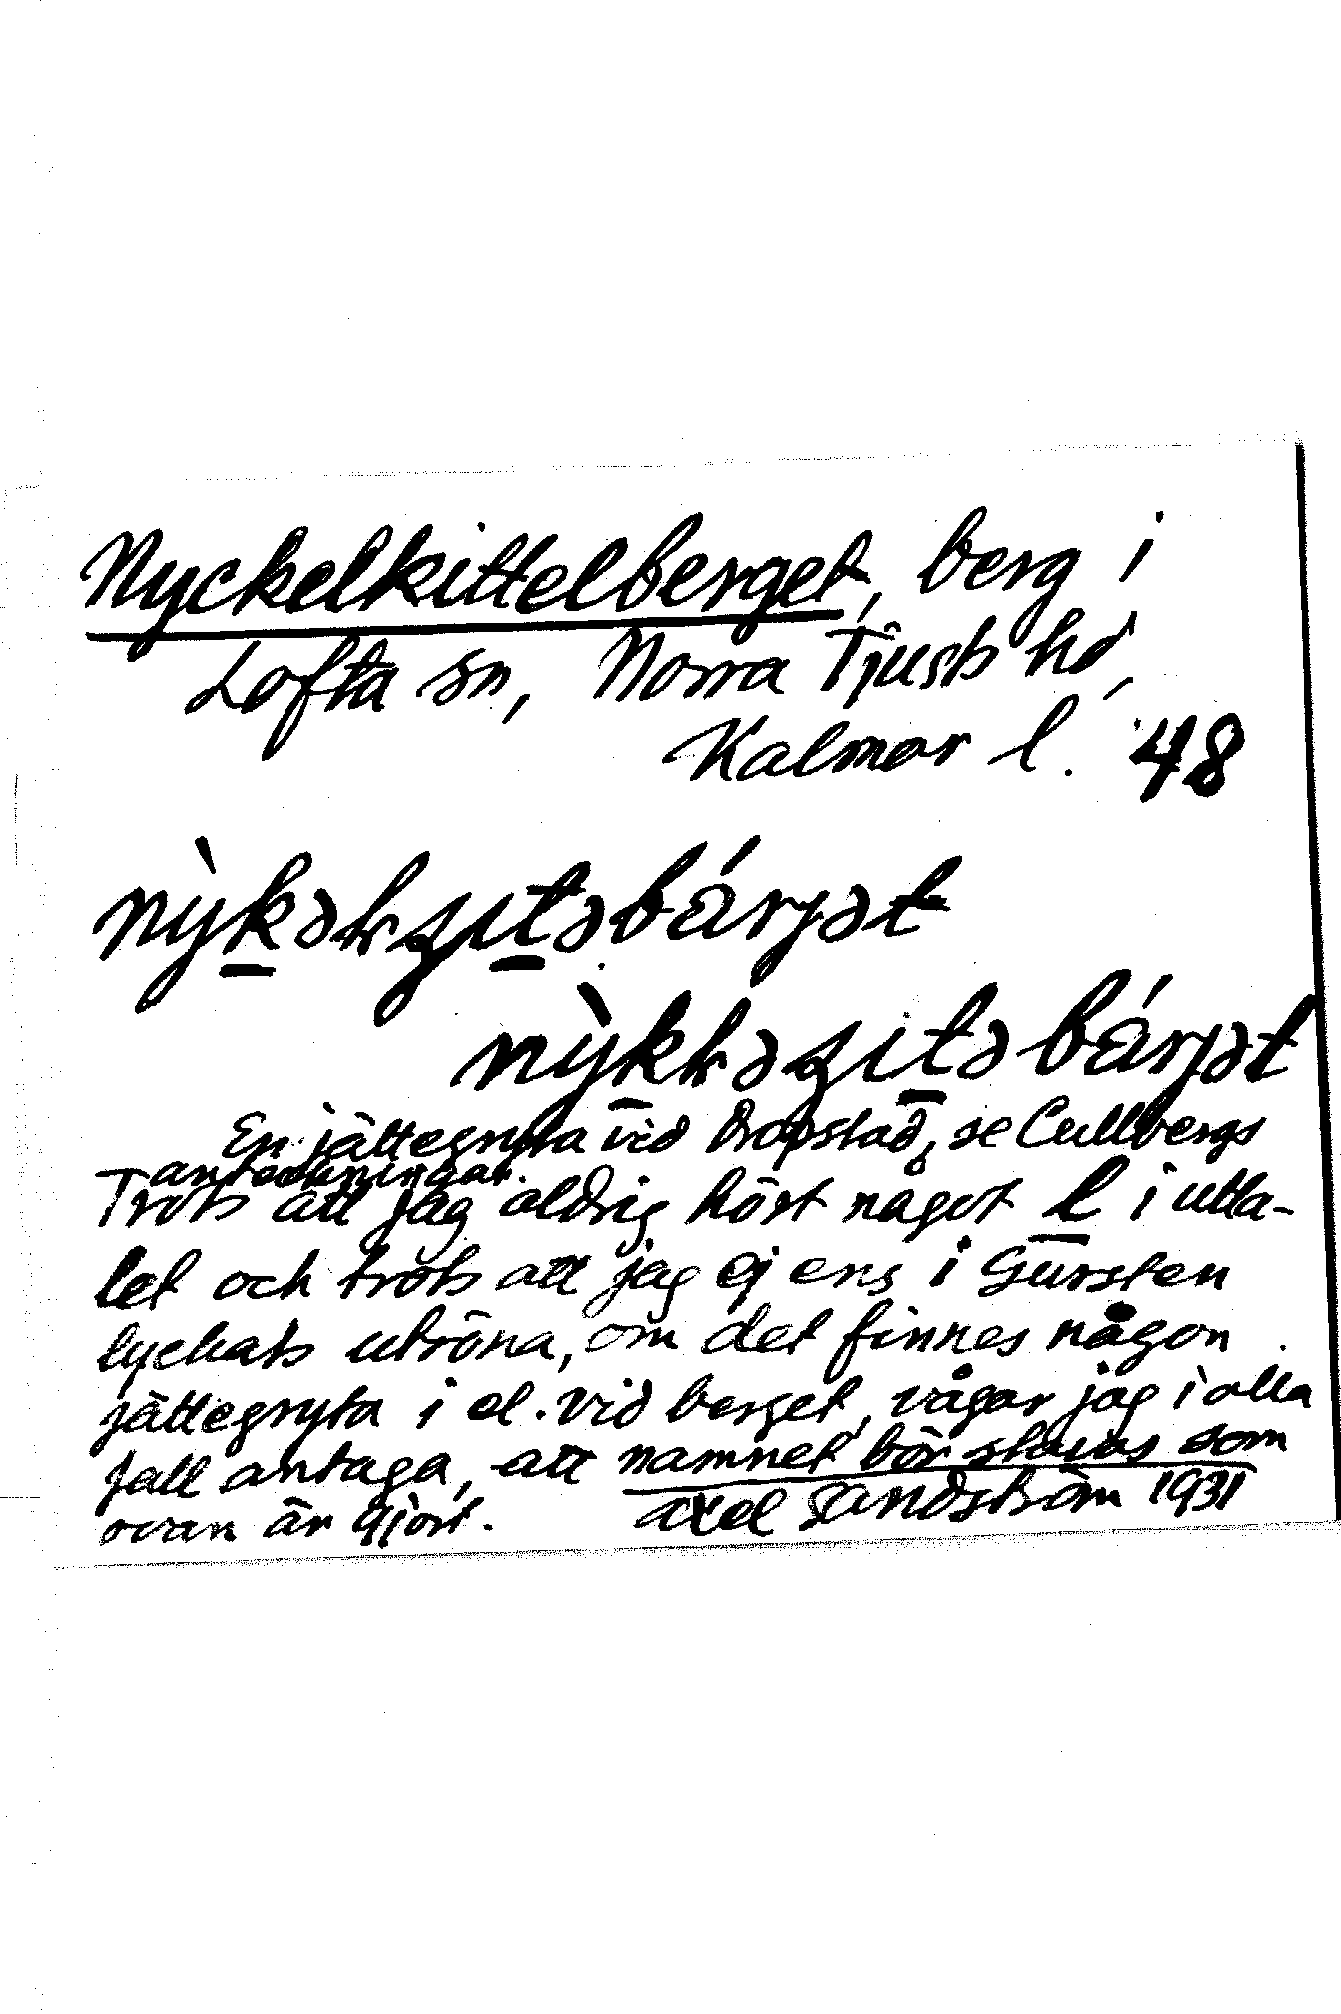 Nyckelkittelberget, berg i
Lofta sn, Norra Tjusts hd,
Kalmar l. 48
En jättegryta vid Dropstad, se Cullbergs
anteckningar.
Trots att jag aldrig hört något l i utta-
let och trots att jag ej ens i Gursten
lyckats utröna, om det finnes någon
jättegryta i el. vid berget, vågar jag i alla
fall antaga, att namnet bör stavas som
ovan är gjort. Axel Sandström 1931